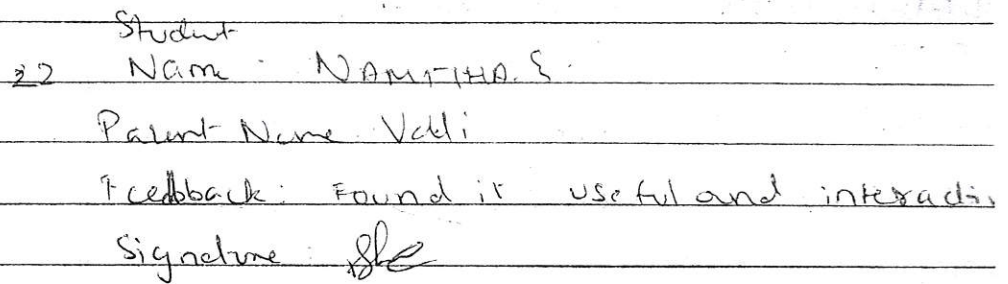 Student
22 Name : NAMITHA.S.
Parent Name Valli
Feedback: Found it useful and interacti
Signature :